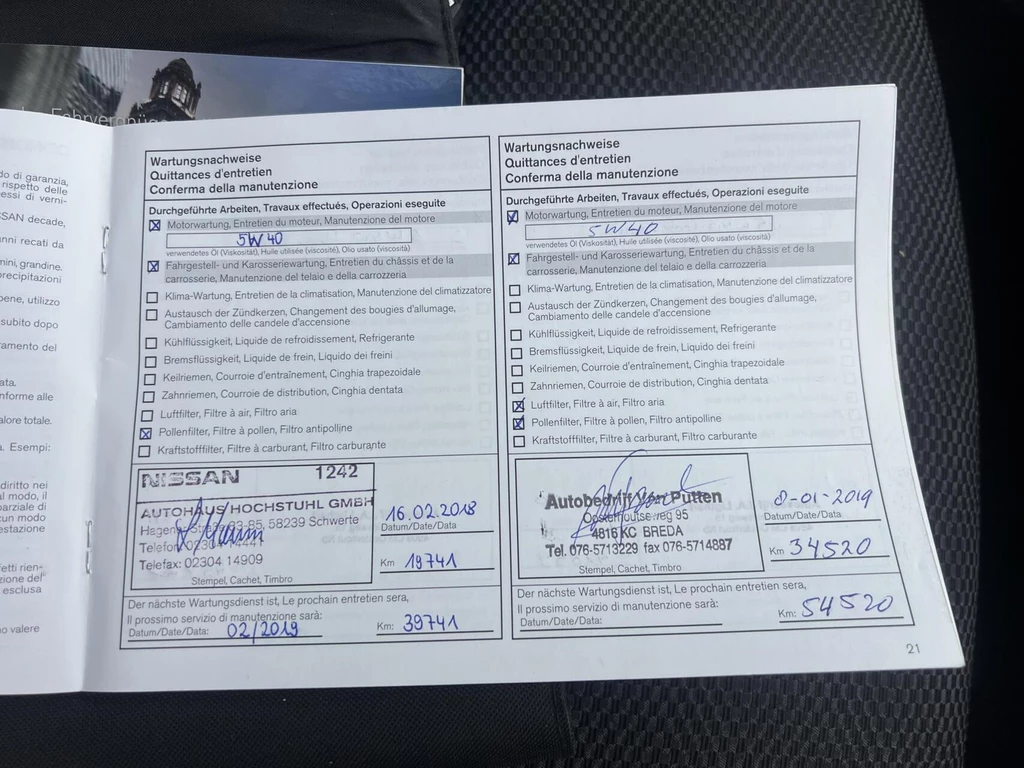 Fahrvergnü
do di garanzia,
rispetto delle
essi di verni-
SSAN decade,
nni recati da
mini, grandine.
recipitazioni
bene, utilizzo
subito dopo
ramento del
ata.
nforme alle
alore totale.
a. Esempi:
diritto nei
al modo, il
parziale di
cun modo
estazione
fetti rien-
zione del
esclusa
no valere
Wartungsnachweise
Quittances d'entretien
Conferma della manutenzione
Durchgeführte Arbeiten, Travaux effectués, Operazioni eseguite
Motorwartung, Entretien du moteur, Manutenzione del motore
5W40
verwendetes Öl (Viskosität), Huile utilisée (viscosité), Olio usato (viscosità)
Fahrgestell- und Karosseriewartung, Entretien du châssis et de la
carrosserie, Manutenzione del telaio e della carrozzeria
Klima-Wartung, Entretien de la climatisation, Manutenzione del climatizzatore
Austausch der Zündkerzen, Changement des bougies d'allumage,
Cambiamento delle candele d'accensione
Kühlflüssigkeit, Liquide de refroidissement, Refrigerante
Bremsflüssigkeit, Liquide de frein, Liquido dei freini
Keilriemen, Courroie d'entraînement, Cinghia trapezoidale
Zahnriemen, Courroie de distribution, Cinghia dentata
Luftfilter, Filtre à air, Filtro aria
Pollenfilter, Filtre à pollen, Filtro antipolline
Kraftstofffilter, Filtre à carburant, Filtro carburante
NISSAN 1242
AUTOHAUS HOCHSTUHL GMBH
63-85, 58239 Schwerte
Telefon 02304
Telefax: 02304 14909
Stempel, Cachet, Timbro
16.02.2018
Datum/Date/Data
Km 19741
Der nächste Wartungsdienst ist, Le prochain entretien sera,
Il prossimo servizio di manutenzione sarà:
Datum/Date/Data: 02/2019 Km: 39741
Wartungsnachweise
Quittances d'entretien
Conferma della manutenzione
Durchgeführte Arbeiten, Travaux effectués, Operazioni eseguite
Motorwartung, Entretien du moteur, Manutenzione del motore
5W40
verwendetes Öl (Viskosität), Huile utilisée (viscosité), Olio usato (viscosità)
Fahrgestell- und Karosseriewartung, Entretien du châssis et de la
carrosserie, Manutenzione del telaio e della carrozzeria
Klima-Wartung, Entretien de la climatisation, Manutenzione del climatizzatore
Austausch der Zündkerzen, Changement des bougies d'allumage,
Cambiamento delle candele d'accensione
Kühlflüssigkeit, Liquide de refroidissement, Refrigerante
Bremsflüssigkeit, Liquide de frein, Liquido dei freini
Keilriemen, Courroie d'entraînement, Cinghia trapezoidale
Zahnriemen, Courroie de distribution, Cinghia dentata
Luftfilter, Filtre à air, Filtro aria
Pollenfilter, Filtre à pollen, Filtro antipolline
Kraftstofffilter, Filtre à carburant, Filtro carburante
Autobedrijf Van Putten
Oosterhoutseweg 95
4816 KC BREDA
Tel. 076-5713229 fax 076-5714887
Stempel, Cachet, Timbro
8-01-2019
Datum/Date/Data
Km 34520
Der nächste Wartungsdienst ist, Le prochain entretien sera,
Il prossimo servizio di manutenzione sarà:
Datum/Date/Data: Km: 54520
21